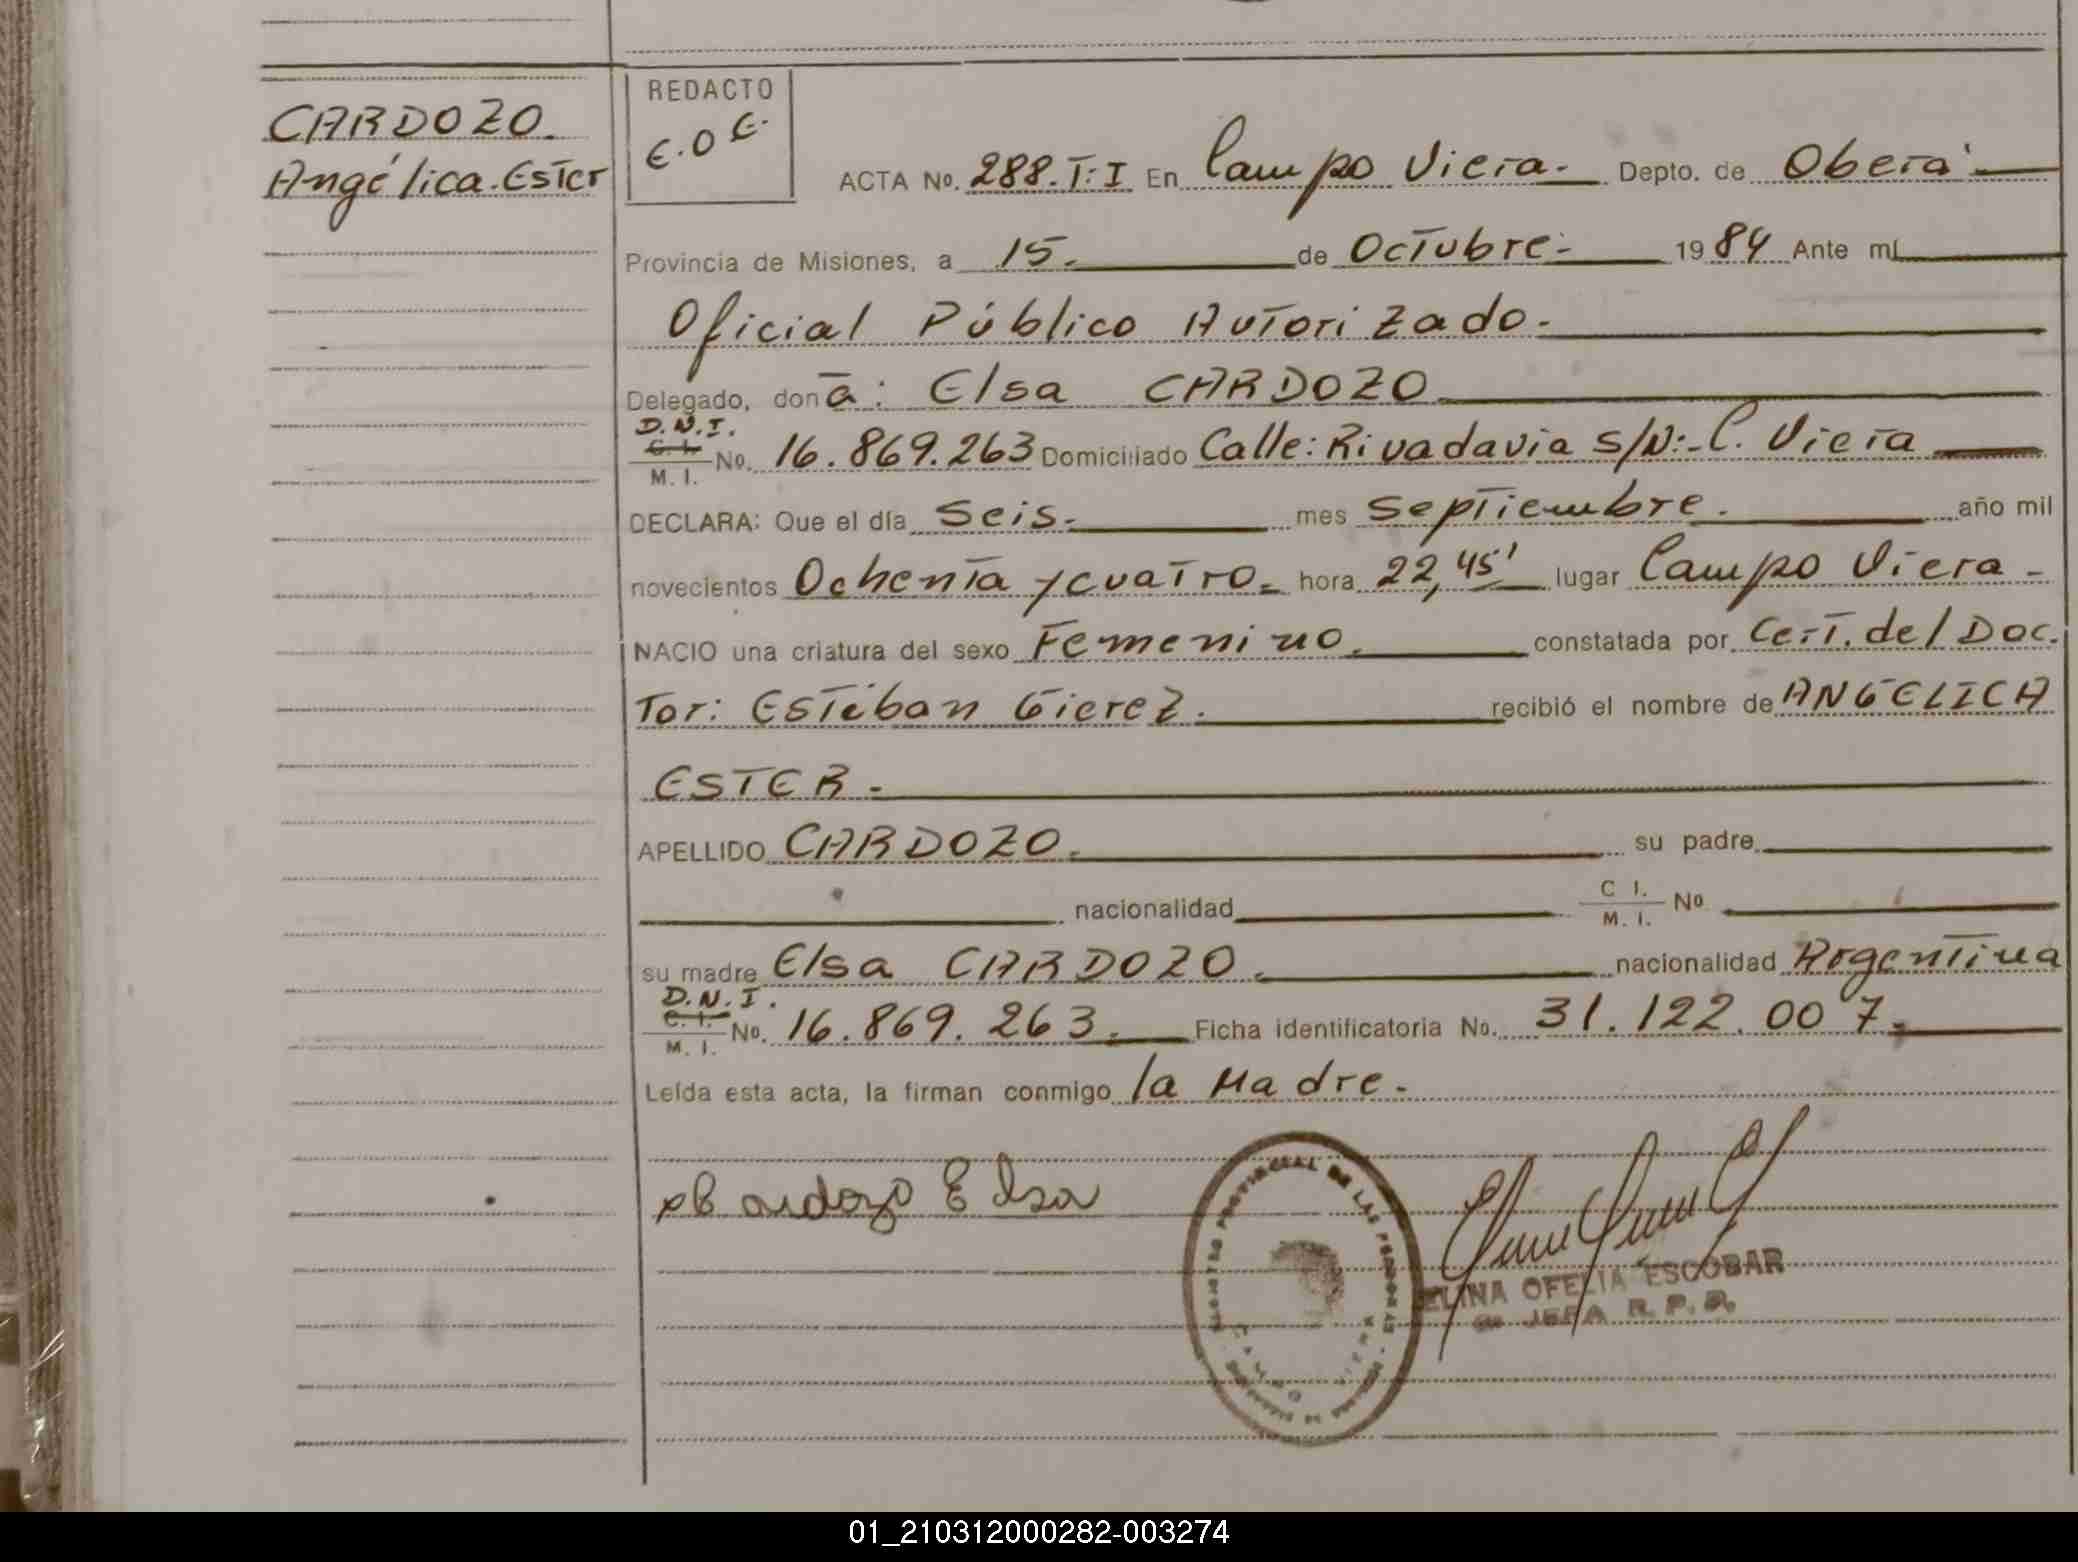 CARDOZO.
Angélica.Ester
REDACTO
E.O E.
ACTA No. 288.T:I En Campo Viera.- Depto. de Oberá
Provincia de Misiones, a 15. de Octubre.- 1984 Ante mí
Oficial Público Autorizado.-
Delegado, doña: Elsa CARDOZO
D.N.I.
C. I.
M. I. No. 16.869.263 Domiciliado Calle: Rivadavia S/N:-C. Viera
DECLARA: Que el día Seis.- mes Septiembre. año mil
novecientos Ochenta y cuatro.- hora 22,45' lugar Campo Viera -
NACIO una criatura del sexo Femenino. constatada por Cert. del Doc.
Tor: Esteban Gierez. recibió el nombre de ANGELICA
ESTER.-
APELLIDO CARDOZO. su padre
nacionalidad C I.
M. I. No
su madre Elsa CARDOZO. nacionalidad Argentina
D.N.I.
C. I.
M. I. No. 16.869.263. Ficha identificatoria No. 31.122.007.
Leída esta acta, la firman conmigo la Madre.-
Cardozo Elsa
REGISTRO PROVINCIAL DE LAS PERSONAS
CAMPO VIERA
ELINA OFELIA ESCOBAR
JEFA R. P. P.
01_210312000282-003274